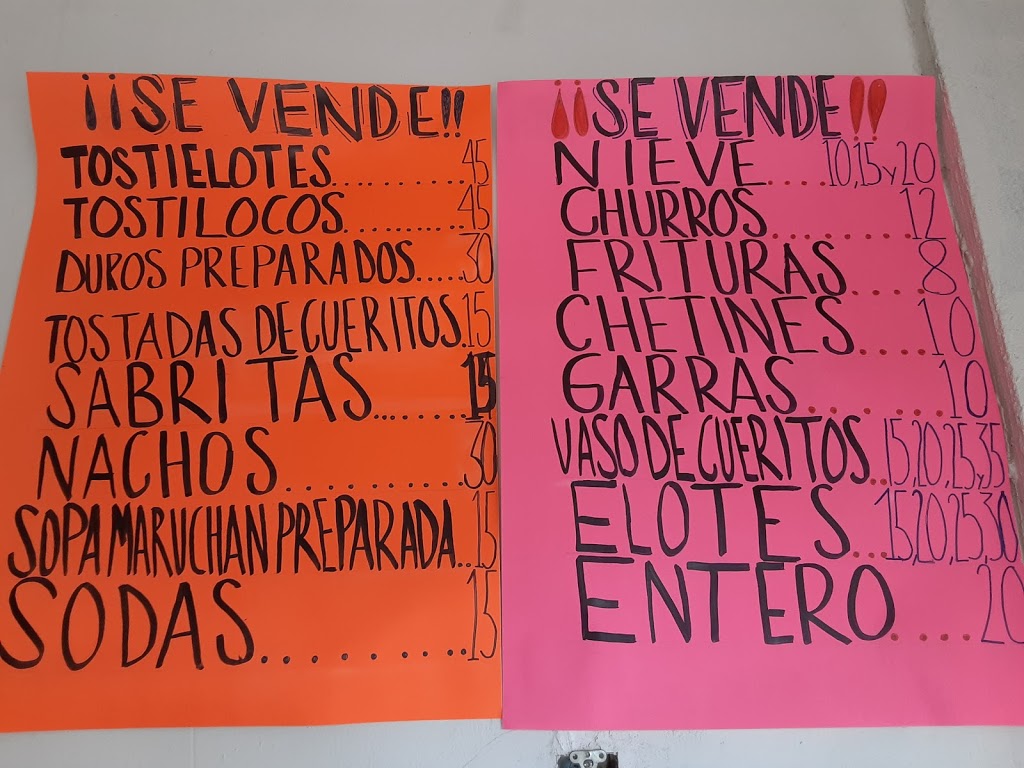 ¡¡SE VENDE!!
TOSTIELOTES.............45
TOSTILOCOS.............45
DUROS PREPARADOS.....30
TOSTADAS DE CUERITOS.15
SABRITAS...........15
NACHOS.........30
SOPA MARUCHAN PREPARADA..15
SODAS.........15
¡¡SE VENDE!!
NIEVE.....10,15 y 20
CHURROS.........12
FRITURAS.....8
CHETINES.....10
GARRAS.......10
VASO DE CUERITOS..15,20,25,35
ELOTES...15,20,25,30
ENTERO....20